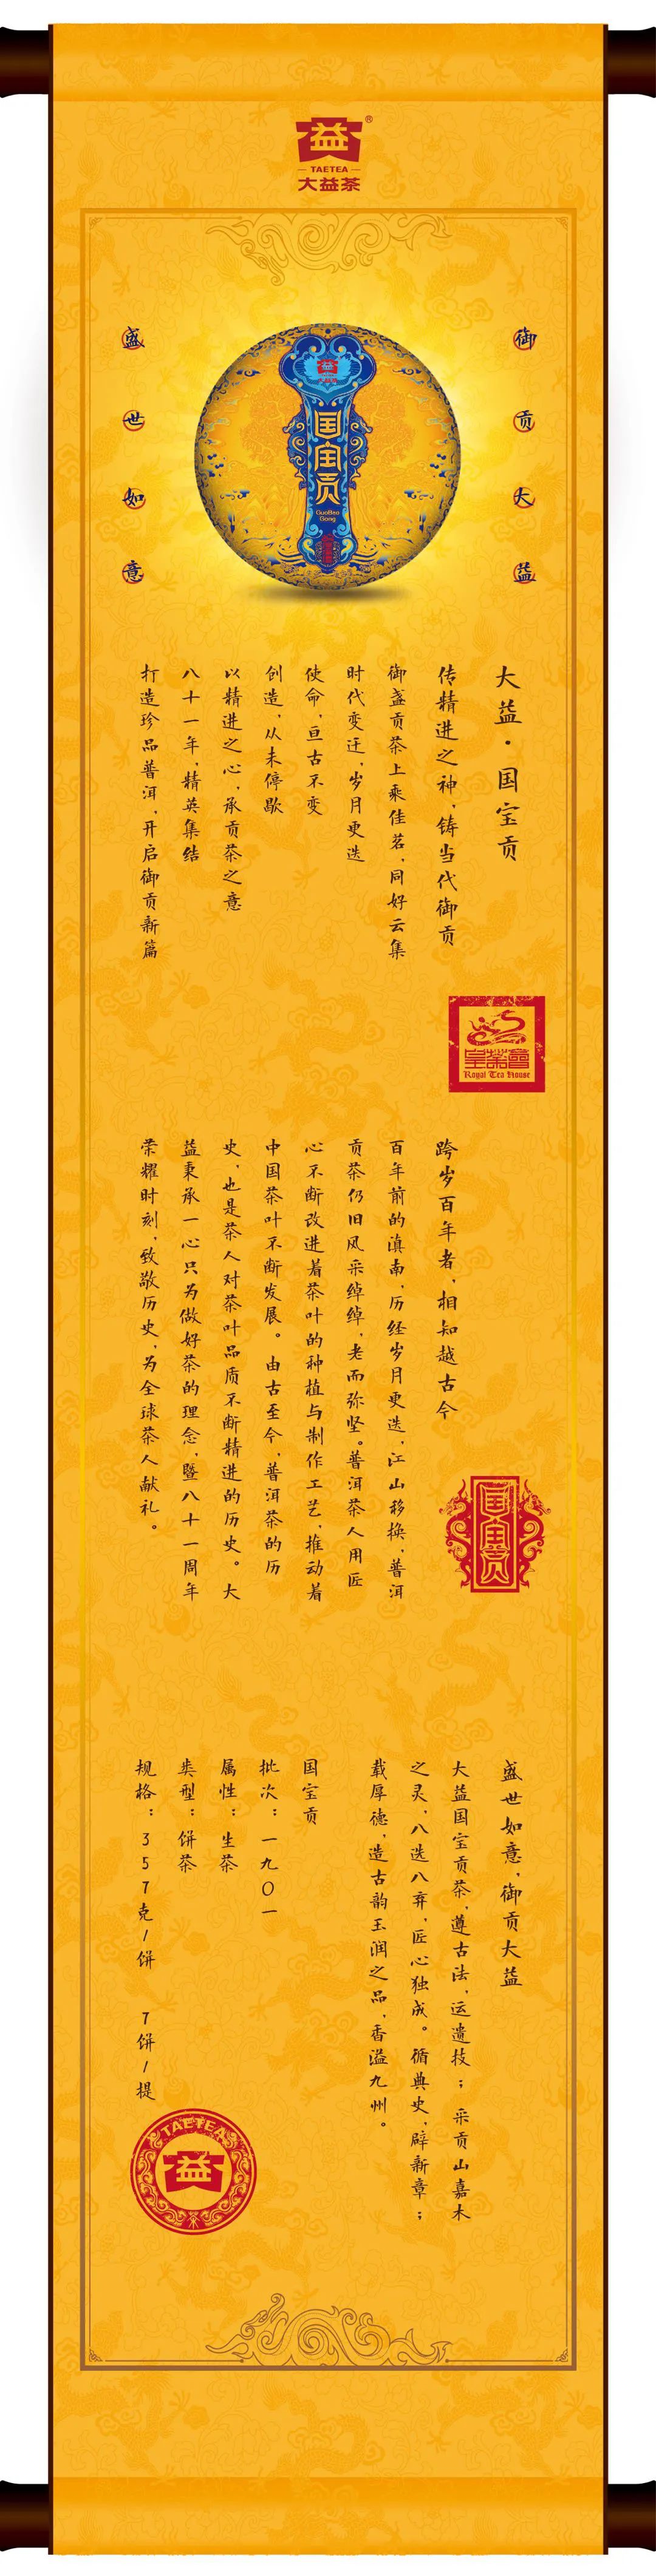 益®
TAETEA
大益茶
御贡大益
盛世如意
大益茶
国宝贡
GuoBao
Gong
大益·国宝贡
传精进之神，铸当代御贡
御盏贡茶上乘佳茗，同好云集
时代变迁，岁月更迭
使命，亘古不变
创造，从未停歇
以精进之心，承贡茶之意
八十一年，精英集结
打造珍品普洱，开启御贡新篇
皇茶會
Royal Tea House
跨岁百年者，相知越古今
百年前的滇南，历经岁月更迭，江山移换，普洱
贡茶仍旧风采绰绰，老而弥坚。普洱茶人用匠
心不断改进着茶叶的种植与制作工艺，推动着
中国茶叶不断发展。由古至今，普洱茶的历
史，也是茶人对茶叶品质不断精进的历史。大
益秉承一心只为做好茶的理念，暨八十一周年
荣耀时刻，致敬历史，为全球茶人献礼。
国宝贡
盛世如意，御贡大益
大益国宝贡茶，遵古法，运遗技；采贡山嘉木
之灵，八选八弃，匠心独成。循典史，辟新章；
载厚德，造古韵玉润之品，香溢九州。
国宝贡
批次：一九〇一
属性：生茶
类型：饼茶
规格：357克/饼 7饼/提
TAETEA
益